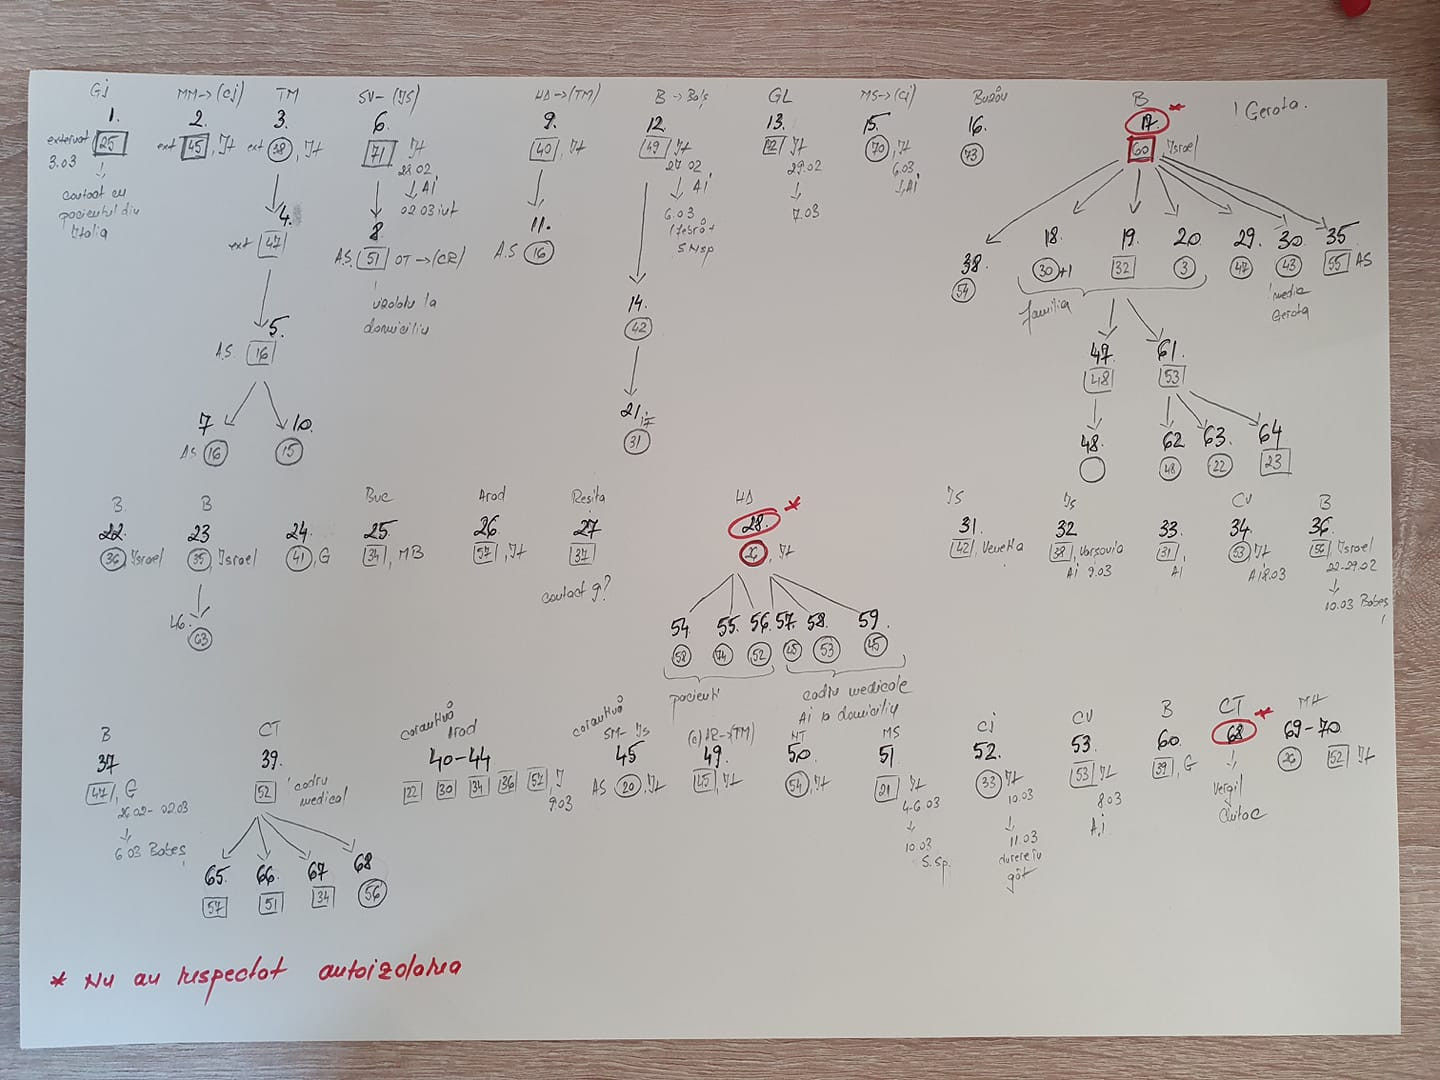 Gj
1.
externat 25
3.03
contact cu
pacientul din
Italia
MM→(Cj)
2.
ext 45, It
TM
3.
ext 38, It
4.
ext 47
5.
A.S. 16
7
AS 16
10.
15
SV→(IS)
6.
71 It
28.02
↓ Ai
02.03 int
8
A.S. 51 OT→(CR)
izolatu la
domiciliu
HD→(TM)
9.
40, It
11.
A.S 16
B→Balș
12.
49 It
27.02
↓ Ai
6.03
14.
42
21. It
31
GL
13.
72 It
29.02
↓
7.03
MS→(Cj)
15.
70, It
6.03
↓Ai
Buzău
16.
73
B
17. *
60, Israel
! Gerota.
38.
54
18.
30+1
19.
32
20
3
familia
29.
47
30.
43
! medic
Gerota
35
55 AS
47.
48
61.
53
48.
62
48
63.
22
64
23
B
22.
36 Israel
B
23
35, Israel
46.
63
24.
41, G
Buc
25.
34, MB
Arad
26
57, It
Resita
27
37
contact gr?
HD
28. *
26, It
54
58
55.
74
56
52
57.
45
58.
53
59.
45
pacienti
cadre medicale
Ai la domiciliu
IS
31.
42, Venetia
Is
32
38, Varsovia
Ai 9.03
33.
31
Ai
CV
34
53 It
Ai 8.03
B
36
56, Israel
22-29.02
↓
10.03 Babeș
B
37
47, G
26.02-02.03
↓
6.03 Babeș
CT
39.
52 ! cadru
medical
65.
57
66.
51
67
34
68
56
carantină
Arad
40-44
22 30 34 36 52 I
9.03
carantină
SM- Is
45
AS 20, It
(c) AR→(TM)
49.
45, It
NT
50
54, It
MS
51
21 It
4-6.03
↓
10.03
S.sp.
Cj
52.
33 It
10.03
↓
11.03
durere in
gât
CV
53.
53 It
8.03
A.i
B
60.
39, G
CT
68 *
↓
Vergil
Chitac
MH
69-70
26 52 It
* Nu au respectat autoizolarea